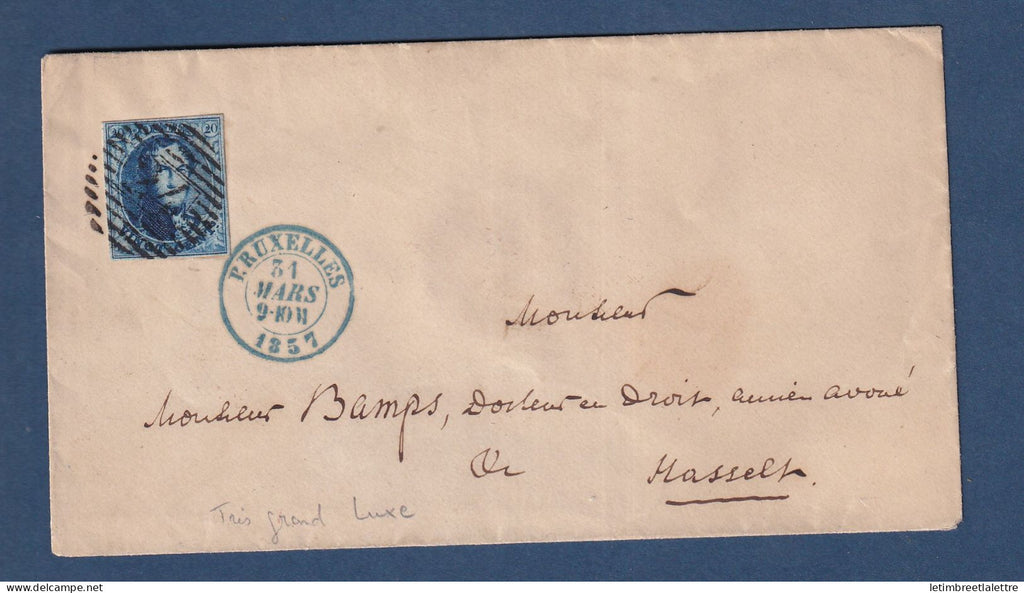 20 20
BRUXELLES
31
MARS
9-10 M
1857
Monsieur
Monsieur Bamps, Docteur en Droit, ancien avoué
Hasselt.
Très grand Luxe
delcampe.net
letimbreetlalettre